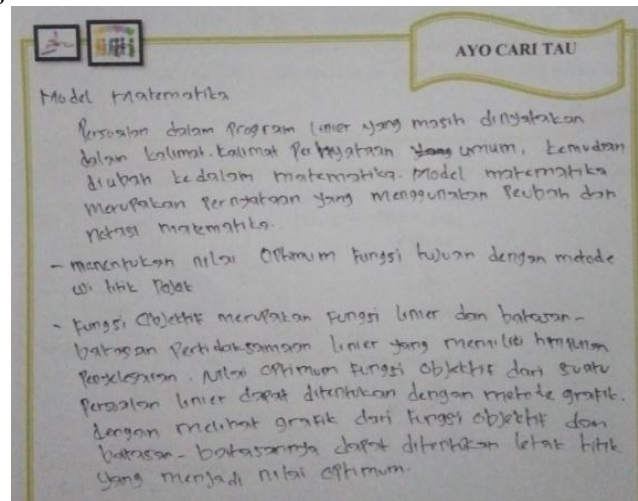 AYO CARI TAU
Model Matematika
Persoalan dalam Program linier yang masih dinyatakan
dalam kalimat-kalimat Pernyataan yang umum, kemudian
diubah kedalam matematika. Model matematika
merupakan Pernyataan yang menggunakan Peubah dan
notasi matematika.
- menentukan nilai Optimum Fungsi tujuan dengan metode
uji titik Pojok
- Fungsi Objektif merupakan Fungsi linier dan batasan-
batasan Pertidaksamaan linier yang memiliki himpunan
Penyelesaian. Nilai optimum fungsi objektif dari suatu
Persoalan linier dapat ditentukan dengan metode grafik.
dengan melihat grafik dari Fungsi objektif dan
batasan-batasannya dapat ditentukan letak titik
yang menjadi nilai optimum.